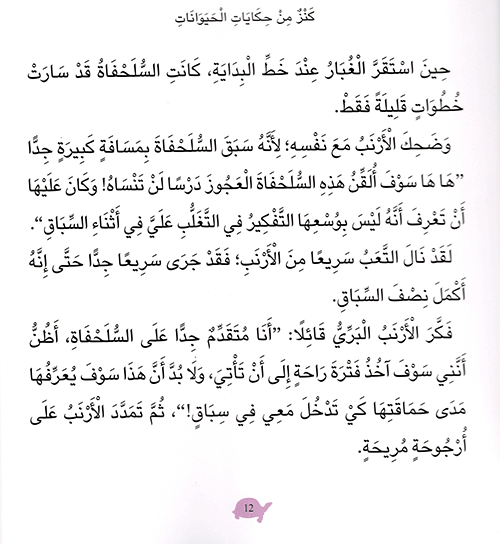 كَنْزٌ مِنْ حِكَايَاتِ الْحَيَوَانَاتِ
حِينَ اسْتَقَرَّ الْغُبَارُ عِنْدَ خَطِّ الْبِدَايَةِ، كَانَتِ السُّلَحْفَاةُ قَدْ سَارَتْ
خُطُوَاتٍ قَلِيلَةً فَقَطْ.
وَضَحِكَ الْأَرْنَبُ مَعَ نَفْسِهِ؛ لِأَنَّهُ سَبَقَ السُّلَحْفَاةَ بِمَسَافَةٍ كَبِيرَةٍ جِدًّا
”هَا هَا سَوْفَ أُلَقِّنُ هَذِهِ السُّلَحْفَاةَ الْعَجُوزَ دَرْسًا لَنْ تَنْسَاهُ! وَكَانَ عَلَيْهَا
أَنْ تَعْرِفَ أَنَّهُ لَيْسَ بِوُسْعِهَا التَّفْكِيرُ فِي التَّغَلُّبِ عَلَيَّ فِي أَثْنَاءِ السِّبَاقِ“.
لَقَدْ نَالَ التَّعَبُ سَرِيعًا مِنَ الْأَرْنَبِ؛ فَقَدْ جَرَى سَرِيعًا جِدًّا حَتَّى إِنَّهُ
أَكْمَلَ نِصْفَ السِّبَاقِ.
فَكَّرَ الْأَرْنَبُ الْبَرِّيُّ قَائِلًا: ”أَنَا مُتَقَدِّمٌ جِدًّا عَلَى السُّلَحْفَاةِ، أَظُنُّ
أَنَّنِي سَوْفَ آخُذُ فَتْرَةَ رَاحَةٍ إِلَى أَنْ تَأْتِيَ، وَلَا بُدَّ أَنَّ هَذَا سَوْفَ يُعَرِّفُهَا
مَدَى حَمَاقَتِهَا كَيْ تَدْخُلَ مَعِي فِي سِبَاقٍ!“، ثُمَّ تَمَدَّدَ الْأَرْنَبُ عَلَى
أُرْجُوحَةٍ مُرِيحَةٍ.
12